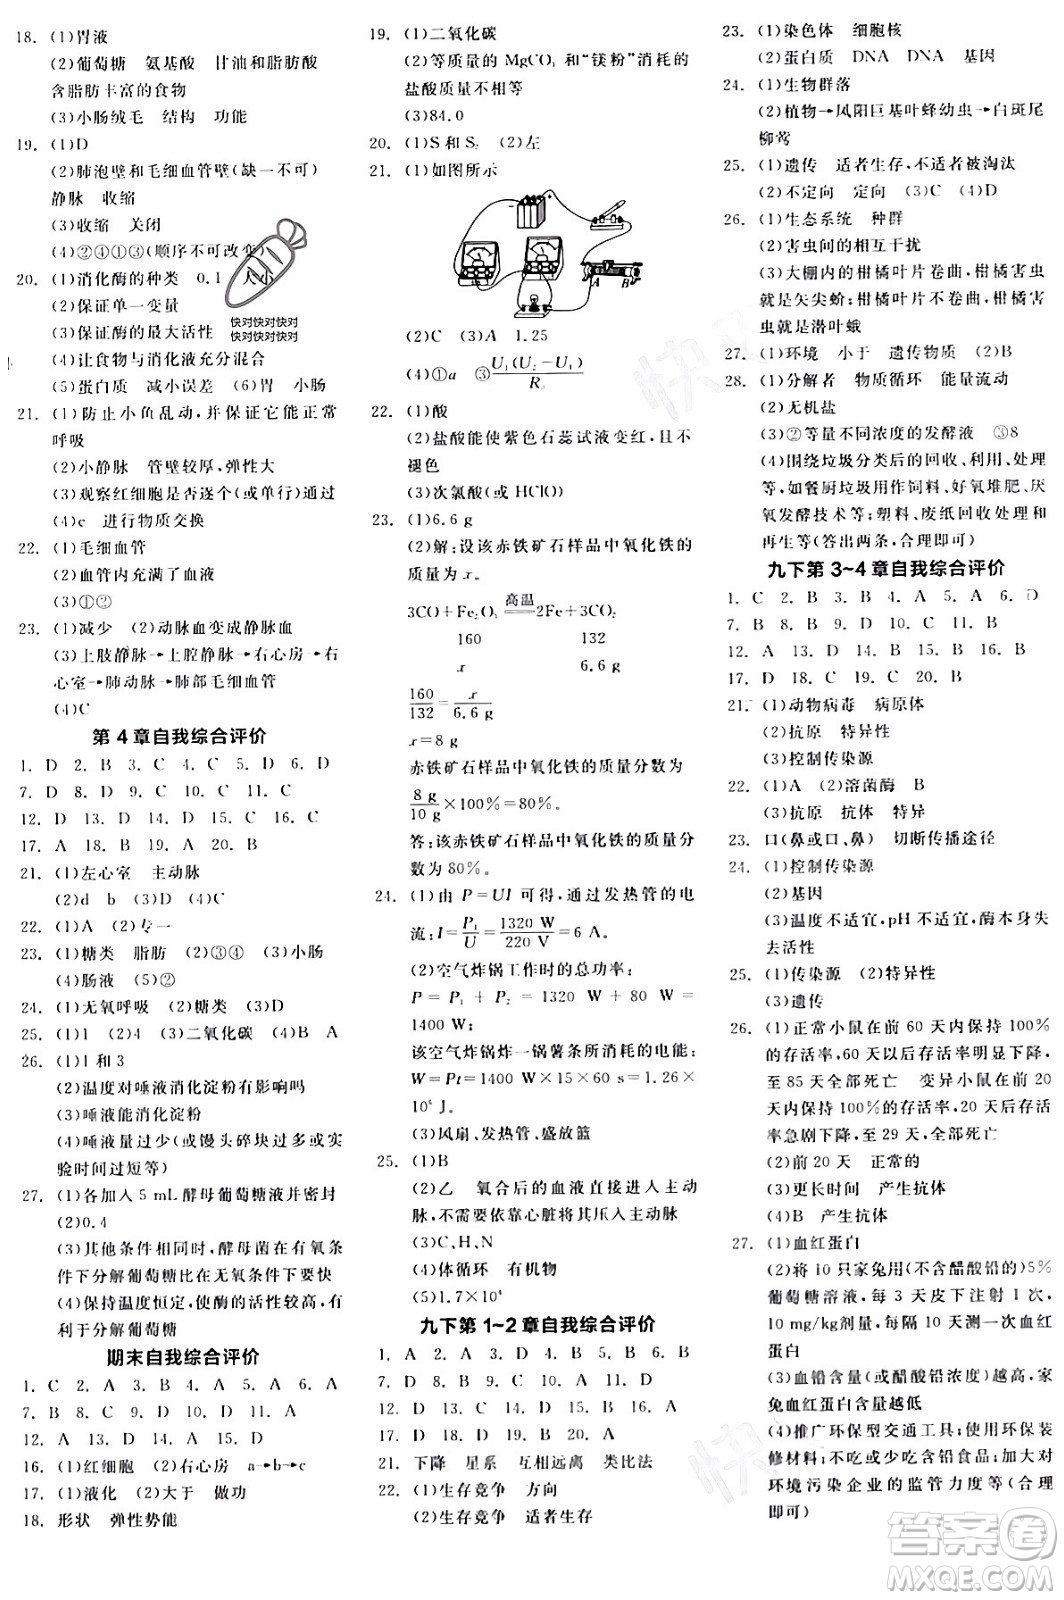 18. (1)胃液
(2)葡萄糖 氨基酸 甘油和脂肪酸
含脂肪丰富的食物
(3)小肠绒毛 结构 功能
19. (1)D
(2)肺泡壁和毛细血管壁(缺一不可)
静脉 收缩
(3)收缩 关闭
(4)②④①③(顺序不可改变)
20. (1)消化酶的种类 0.1 大小
(2)保证单一变量
(3)保证酶的最大活性
(4)让食物与消化液充分混合
(5)蛋白质 减小误差 (6)胃 小肠
21. (1)防止小鱼乱动,并保证它能正常
呼吸
(2)小静脉 管壁较厚,弹性大
(3)观察红细胞是否逐个(或单行)通过
(4)c 进行物质交换
22. (1)毛细血管
(2)血管内充满了血液
(3)①②
23. (1)减少 (2)动脉血变成静脉血
(3)上肢静脉→上腔静脉→右心房→右
心室→肺动脉→肺部毛细血管
(4)C
第 4 章自我综合评价
1. D 2. B 3. C 4. C 5. D 6. D
7. D 8. D 9. C 10. C 11. C
12. D 13. D 14. D 15. D 16. C
17. A 18. B 19. A 20. B
21. (1)左心室 主动脉
(2)d b (3)D (4)C
22. (1)A (2)专一
23. (1)糖类 脂肪 (2)③④ (3)小肠
(4)肠液 (5)②
24. (1)无氧呼吸 (2)糖类 (3)D
25. (1)1 (2)4 (3)二氧化碳 (4)B A
26. (1)1 和 3
(2)温度对唾液消化淀粉有影响吗
(3)唾液能消化淀粉
(4)唾液量过少(或馒头碎块过多或实
验时间过短等)
27. (1)各加入 5 mL 酵母葡萄糖液并密封
(2)0.4
(3)其他条件相同时,酵母菌在有氧条
件下分解葡萄糖比在无氧条件下要快
(4)保持温度恒定,使酶的活性较高,有
利于分解葡萄糖
期末自我综合评价
1. C 2. A 3. B 4. A 5. A 6. A
7. B 8. B 9. C 10. B 11. C
12. A 13. D 14. D 15. A
16. (1)红细胞 (2)右心房 a→b→c
17. (1)液化 (2)大于 做功
18. 形状 弹性势能
19. (1)二氧化碳
(2)等质量的 MgCO₃ 和“镁粉”消耗的
盐酸质量不相等
(3)84.0
20. (1)S 和 S₂ (2)左
21. (1)如图所示
A B
(2)C (3)A 1.25
(4)①a ③U₁(U₂－U₁)/R₀
22. (1)酸
(2)盐酸能使紫色石蕊试液变红,且不
褪色
(3)次氯酸(或 HClO)
23. (1)6.6 g
(2)解:设该赤铁矿石样品中氧化铁的
质量为 x。
3CO＋Fe₂O₃ 高温 2Fe＋3CO₂
160 132
x 6.6 g
160/132＝x/6.6 g
x＝8 g
赤铁矿石样品中氧化铁的质量分数为
8 g/10 g×100%＝80%。
答:该赤铁矿石样品中氧化铁的质量分
数为 80%。
24. (1)由 P＝UI 可得,通过发热管的电
流:I＝P₁/U＝1320 W/220 V＝6 A。
(2)空气炸锅工作时的总功率:
P ＝ P₁ ＋ P₂ ＝ 1320 W ＋ 80 W ＝
1400 W;
该空气炸锅炸一锅薯条所消耗的电能:
W＝Pt＝1400 W×15×60 s＝1.26×
10⁶ J。
(3)风扇、发热管、盛放篮
25. (1)B
(2)乙 氧合后的血液直接进入主动
脉,不需要依靠心脏将其压入主动脉
(3)C、H、N
(4)体循环 有机物
(5)1.7×10⁴
九下第 1~2 章自我综合评价
1. A 2. D 3. D 4. A 5. D 6. B
7. D 8. C 9. D 10. A 11. B
12. C 13. D 14. D 15. D 16. B
17. B 18. C 19. B 20. B
21. 下降 星系 互相远离 类比法
22. (1)生存竞争 方向
(2)生存竞争 适者生存
23. (1)染色体 细胞核
(2)蛋白质 DNA DNA 基因
24. (1)生物群落
(2)植物→凤阳巨基叶蜂幼虫→白斑尾
柳莺
25. (1)遗传 适者生存,不适者被淘汰
(2)不定向 定向 (3)C (4)D
26. (1)生态系统 种群
(2)害虫间的相互干扰
(3)大棚内的柑橘叶片卷曲,柑橘害虫
就是矢尖蚧;柑橘叶片不卷曲,柑橘害
虫就是潜叶蛾
27. (1)环境 小于 遗传物质 (2)B
28. (1)分解者 物质循环 能量流动
(2)无机盐
(3)②等量不同浓度的发酵液 ③8
(4)围绕垃圾分类后的回收、利用、处理
等,如餐厨垃圾用作饲料、好氧堆肥、厌
氧发酵技术等;塑料、废纸回收处理和
再生等(答出两条,合理即可)
九下第 3~4 章自我综合评价
1. C 2. B 3. B 4. A 5. A 6. D
7. B 8. B 9. D 10. C 11. B
12. A 13. D 14. B 15. B 16. B
17. D 18. C 19. C 20. D
21. (1)动物病毒 病原体
(2)抗原 特异性
(3)控制传染源
22. (1)A (2)溶菌酶 B
(3)抗原 抗体 特异
23. 口(鼻或口、鼻) 切断传播途径
24. (1)控制传染源
(2)基因
(3)温度不适宜,pH 不适宜,酶本身失
去活性
25. (1)传染源 (2)特异性
(3)遗传
26. (1)正常小鼠在前 60 天内保持 100%
的存活率,60 天后存活率开始下降,
至 85 天全部死亡 变异小鼠在前 20
天内保持 100%的存活率,20 天后存活
率急剧下降,至 29 天,全部死亡
(2)前 20 天 正常的
(3)更长时间 产生抗体
(4)B 产生抗体
27. (1)血红蛋白
(2)将 10 只家兔用(不含醋酸铅的)5%
葡萄糖溶液,每 3 天皮下注射 1 次,
10 mg/kg剂量,每隔 10天测一次血红
蛋白
(3)血铅含量(或醋酸铅浓度)越高,家
兔血红蛋白含量越低
(4)推广环保型交通工具;使用环保装
修材料;不吃或少吃含铅食品;加大对
环境污染企业的监管力度等(合理
即可)
快对快对快对
快对快对快对
答案圈